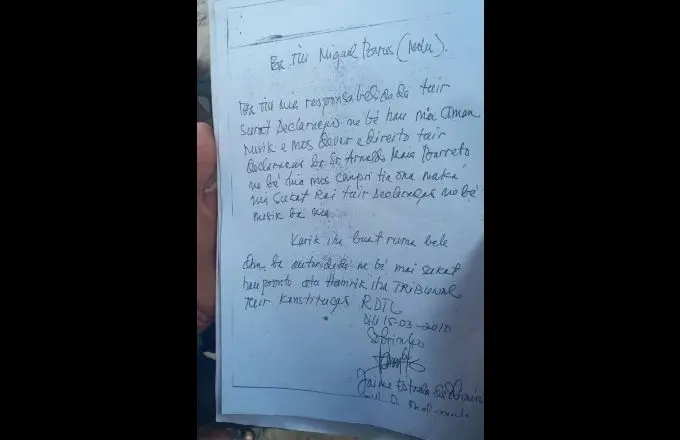 Ba Tiu Miguel Barros (Nodu).
Ba Tiu nia responsabelidade tuir
surat Declaração ne bé hau nia aman
husik e mos dever e direito tuir
Declaraçao ba Sr. Arnaldo Maia Barreto
ne bé nia mos cumpri tia ona maka
nia sukat Rai tuir Declaraçao ne bé
husik ba nia
Karik iha buat ruma bele
dehan ba autoridade ne bé mai sukat
hau pronto atu Hamrik iha TRIBUNAL
tuir Konstituiçao RDTL
Dili 15-03-2010
Sobrinho
Jaime Estrela de Oliveira